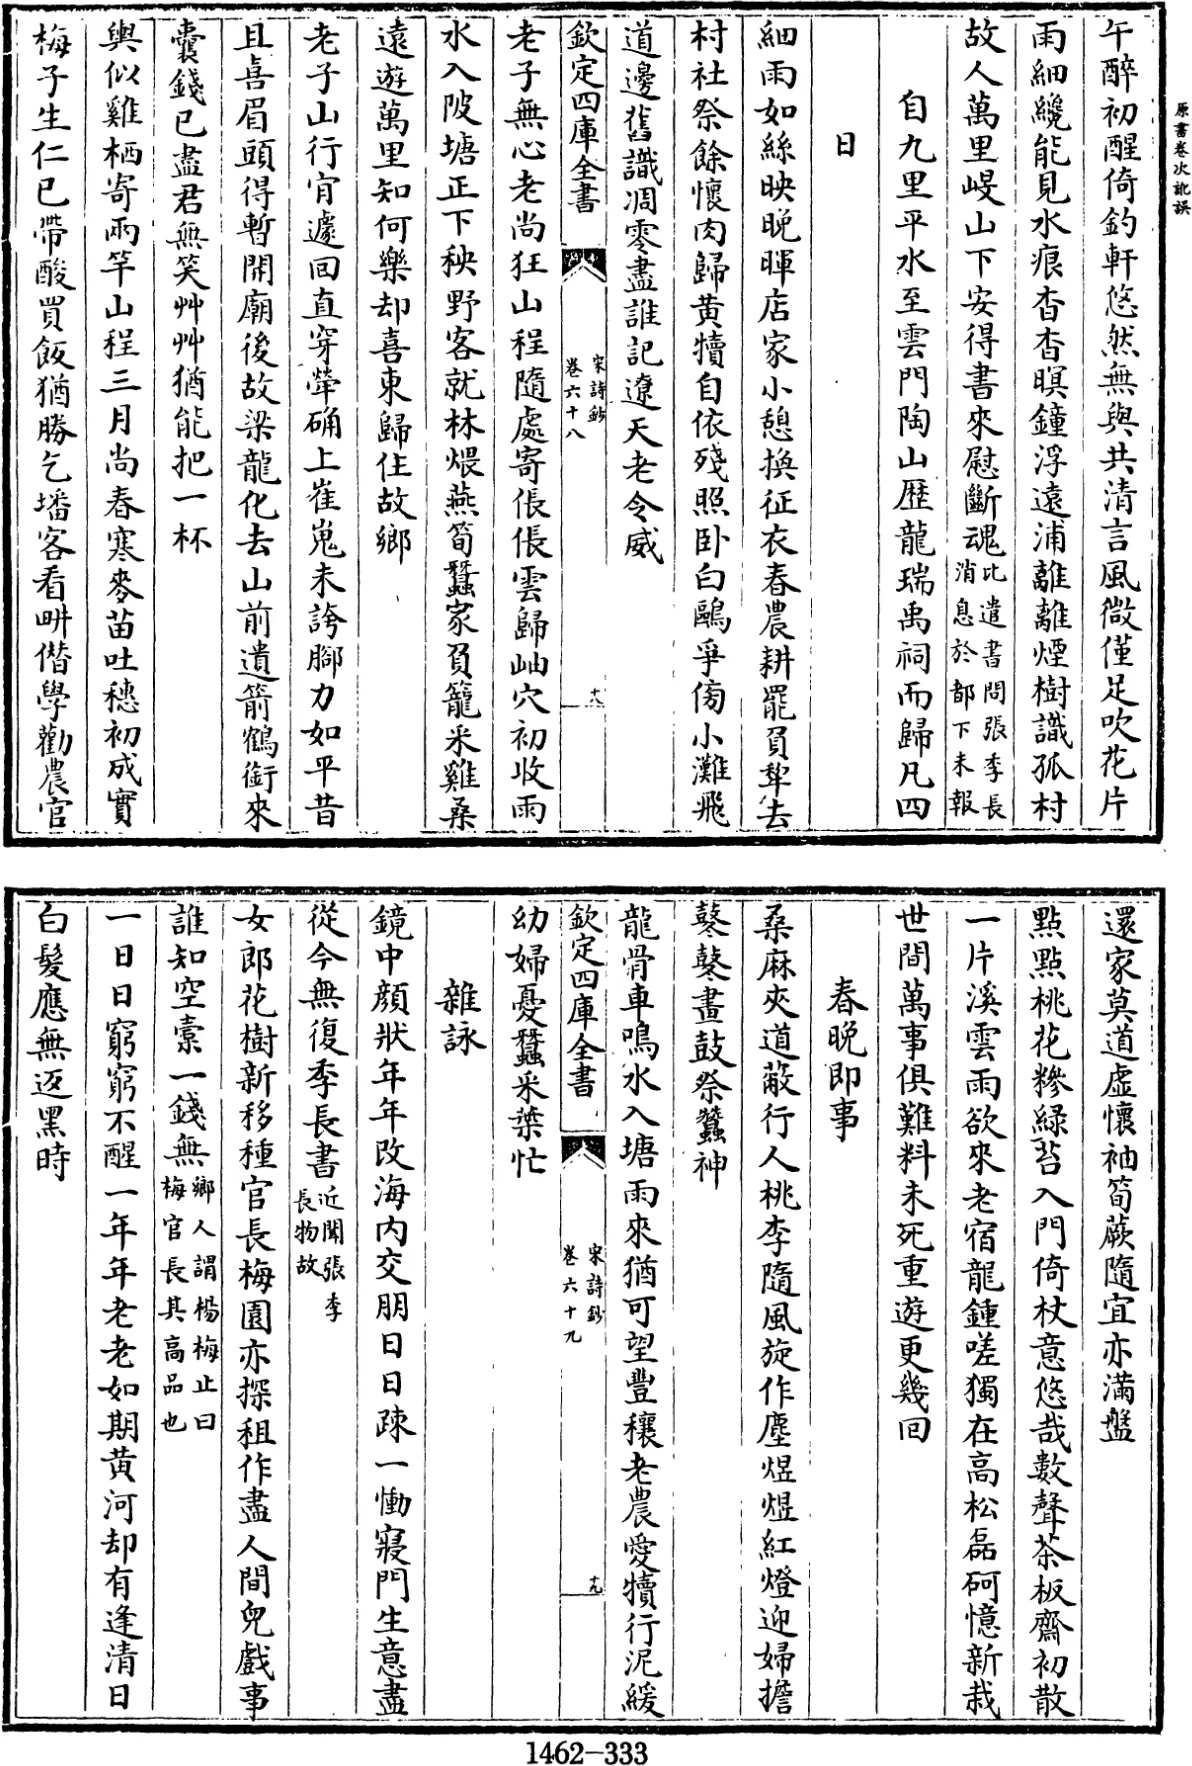 原書卷次訛誤
午醉初醒倚釣軒悠然無與共清言風微僅足吹花片
雨細纔能見水痕杳杳暝鐘浮遠浦離離煙樹識孤村
故人萬里峴山下安得書來慰斷魂比遣書問張季長消息於都下未報
自九里平水至雲門陶山歷龍瑞禹祠而歸凡四
日
細雨如絲映晚暉店家小憩換征衣春農耕罷負犂去
村社祭餘懷肉歸黃犢自依殘照臥白鷗爭傍小灘飛
道邊舊識凋零盡誰記遼天老令威
欽定四庫全書 宋詩鈔 卷六十八 十八
老子無心老尚狂山程隨處寄倀倀雲歸岫穴初收雨
水入陂塘正下秧野客就林煨燕筍蠶家負籠采雞桑
遠遊萬里知何樂却喜東歸住故鄉
老子山行肎遽回直穿犖确上崔嵬未誇腳力如平昔
且喜眉頭得暫開廟後故梁龍化去山前遺箭鶴銜來
囊錢已盡君無笑艸艸猶能把一杯
輿似雞栖寄兩竿山程三月尚春寒麥苗吐穗初成實
梅子生仁已帶酸買飯猶勝乞墦客看畊偕學勸農官
還家莫道虛懷袖筍蕨隨宜亦滿盤
點點桃花糝綠苔入門倚杖意悠哉數聲茶板齋初散
一片溪雲雨欲來老宿龍鍾嗟獨在高松磊砢憶新栽
世間萬事俱難料未死重遊更幾回
春晚即事
桑麻夾道蔽行人桃李隨風旋作塵煜煜紅燈迎婦擔
鼕鼕畫鼓祭蠶神
龍骨車鳴水入塘雨來猶可望豐穰老農愛犢行泥緩
欽定四庫全書 宋詩鈔 卷六十九 十九
幼婦憂蠶采葉忙
雜詠
鏡中顏狀年年改海內交朋日日疎一慟寢門生意盡
從今無復季長書近聞張季長物故
女郎花樹新移種官長梅園亦探租作盡人間兒戲事
誰知空橐一錢無鄉人謂楊梅止曰梅官長其高品也
一日日窮窮不醒一年年老老如期黃河却有逢清日
白髮應無返黑時
1462-333